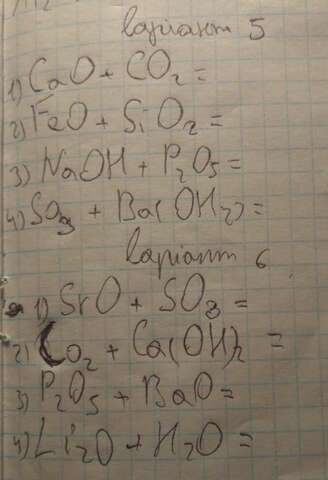 Варіант 5
1) CaO + CO₂ =
2) FeO + SiO₂ =
3) NaOH + P₂O₅ =
4) SO₃ + Ba(OH₂) =
Варіант 6
1) SrO + SO₃ =
2) CO₂ + Ca(OH)₂ =
3) P₂O₅ + BaO =
4) Li₂O + H₂O =